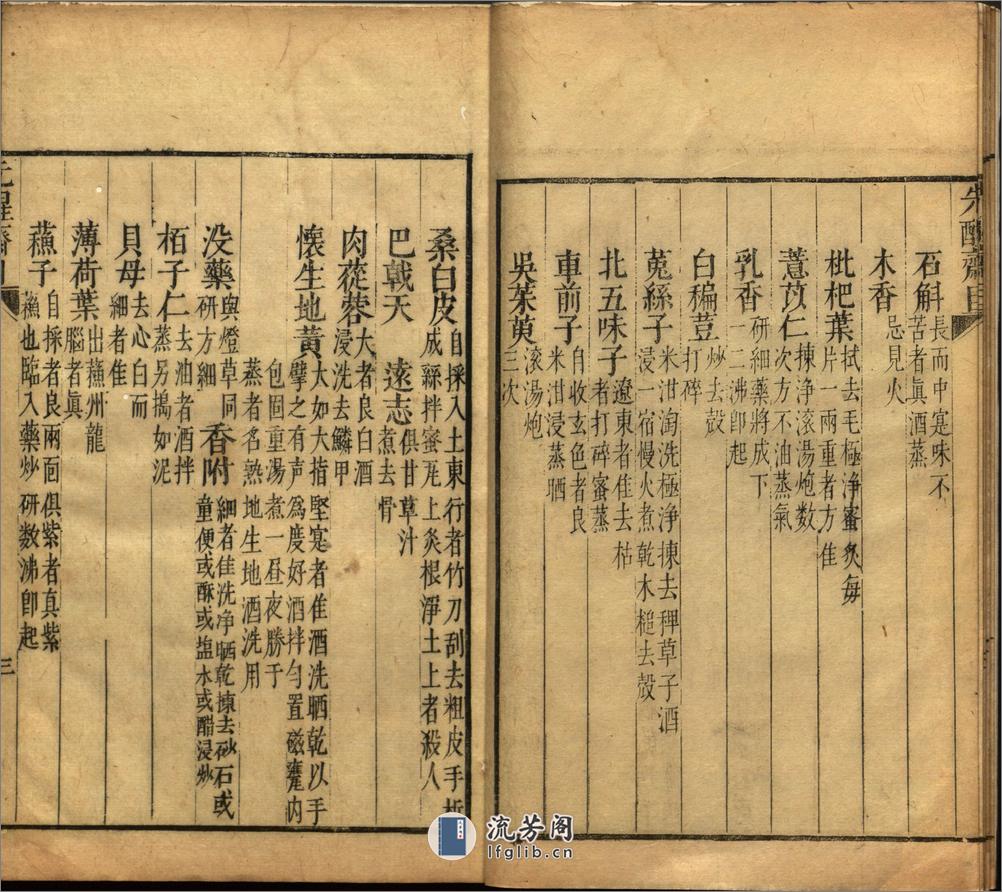 先醒齋目
石斛長而中寔味不苦者眞酒蒸
木香忌見火
枇杷葉拭去毛極淨蜜炙每片一兩重者方佳
薏苡仁揀净滚湯炮数次方不油蒸氣
乳香研細藥將成下一二沸卽起
白稨荳炒去殼打碎
菟絲子米泔淘洗極净揀去稗草子酒浸一宿慢火煮乾木槌去殻
北五味子遼東者佳去枯者打碎蜜蒸
車前子自收玄色者良米泔浸蒸晒
吳茱萸滚湯炮三次
桑白皮自採入土東行者竹刀刮去粗皮手析成絲拌蜜瓦上炙根淨土上者殺人
巴戟天 遠志俱甘草汁煮去骨
肉蓯蓉大者良白酒浸洗去鱗甲
懷生地黃大如大指堅寔者佳酒洗晒乾以手擘之有声爲度好酒拌勻置磁甕内
包固重湯煮一昼夜勝于蒸者名熟地生地酒洗用
没藥與燈草同研方細 香附細者佳洗净晒乾揀去砂石或童便或酥或塩水或醋浸炒
栢子仁去油者酒拌蒸另搗如泥
貝母去心白而細者佳
薄荷葉出蘓州龍腦者眞
蘓子自採者良兩面俱紫者真紫蘓也臨入藥炒研数沸卽起
先醒齋目
三
流芳阁
lfglib.cn